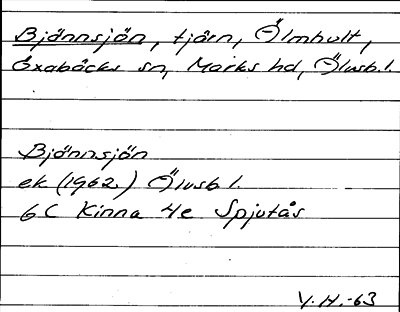 Bjännsjön, tjärn, Älmhult,
Öxabäcks sn, Marks hd, Älvsb.l.
Bjännsjön
ek (1962) Älvsb l.
6C Kinna 4e Spjutås
V.H.-63